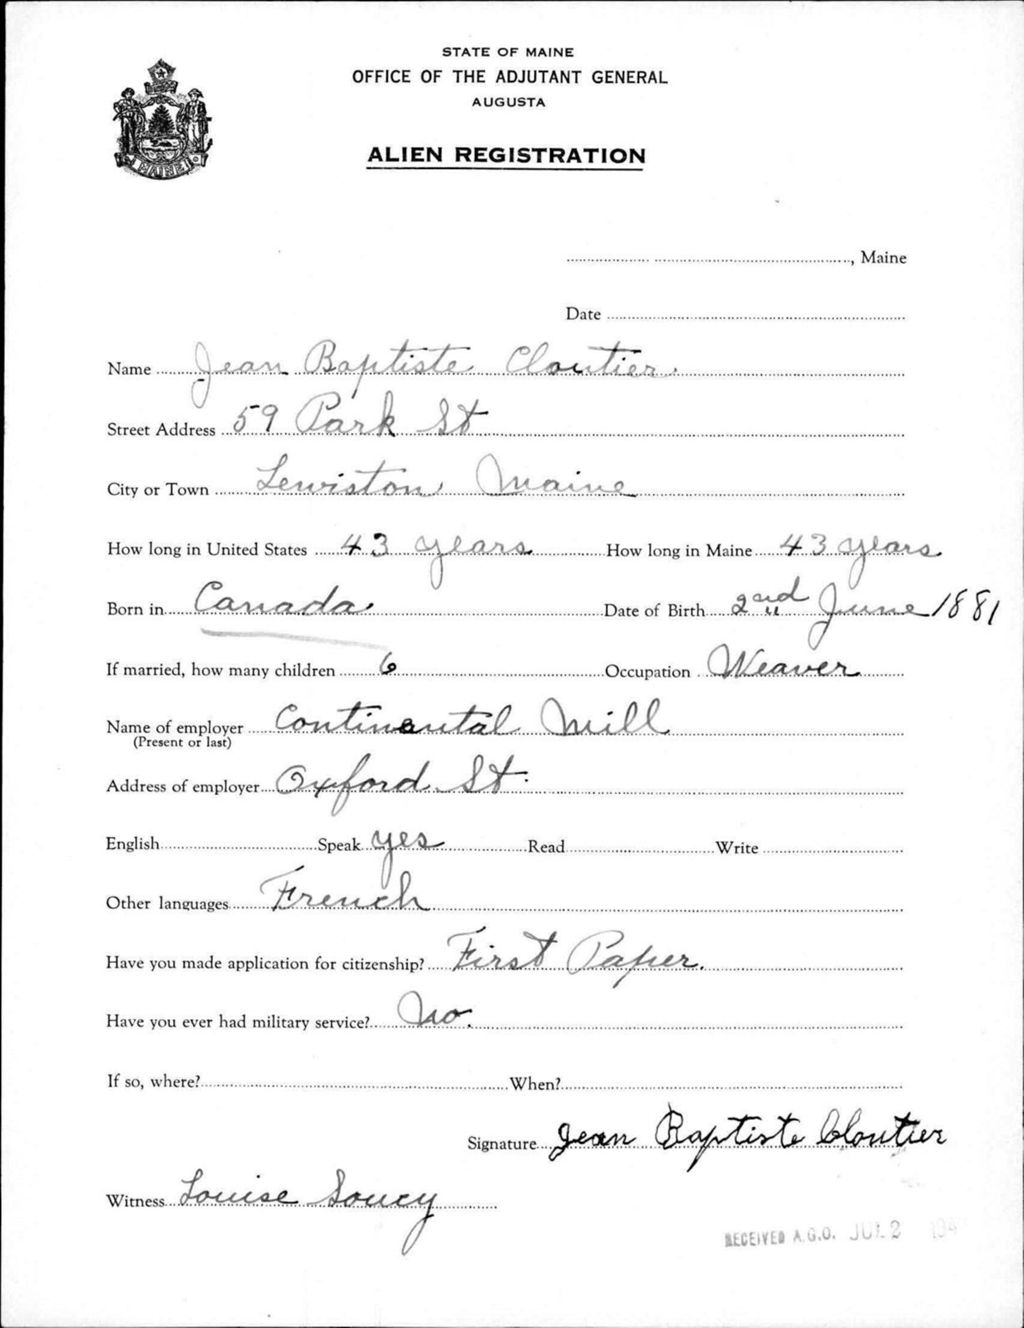 STATE OF MAINE
OFFICE OF THE ADJUTANT GENERAL
AUGUSTA
ALIEN REGISTRATION
MAINE
, Maine
Date
Name Jean Baptiste Cloutier.
Street Address 59 Park St
City or Town Lewiston Maine
How long in United States 43 years How long in Maine 43 years
Born in Canada Date of Birth 2nd June 1881
If married, how many children 6 Occupation Weaver
Name of employer Continental Mill
(Present or last)
Address of employer Oxford St.
English Speak yes Read Write
Other languages French
Have you made application for citizenship? First Paper.
Have you ever had military service? No.
If so, where? When?
Signature Jean Baptiste Cloutier
Witness Louise Soucy
RECEIVED A.G.O. JUL 2